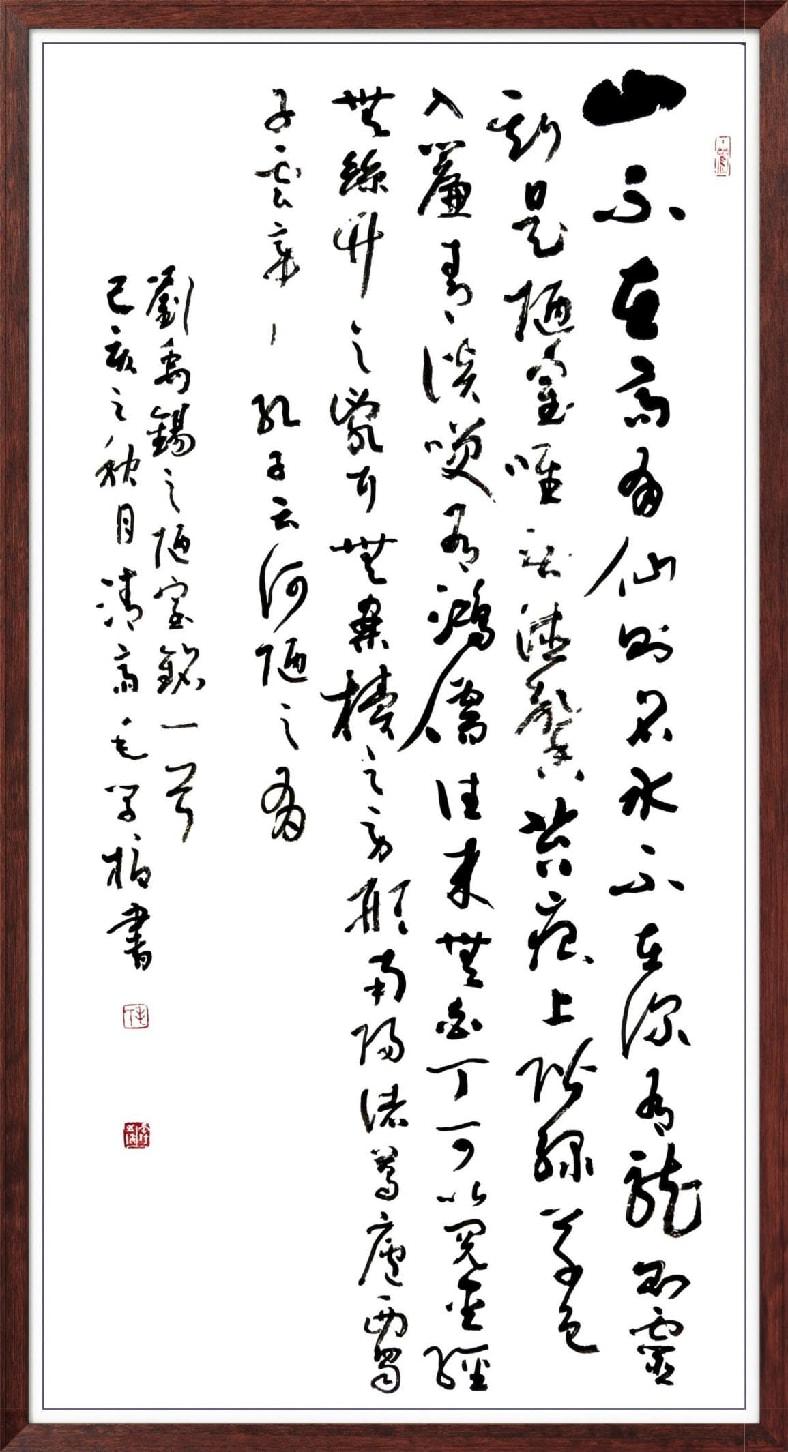 山不在高有仙則名水不在深有龍則靈
斯是陋室唯吾德馨苔痕上階綠草色
入簾青談笑有鴻儒往来無白丁可以閱金經
無絲竹之亂耳無案牘之勞形南陽諸葛廬西蜀
子雲亭孔子云何陋之有
劉禹錫之陋室銘一首
己亥之秋月清高毛書